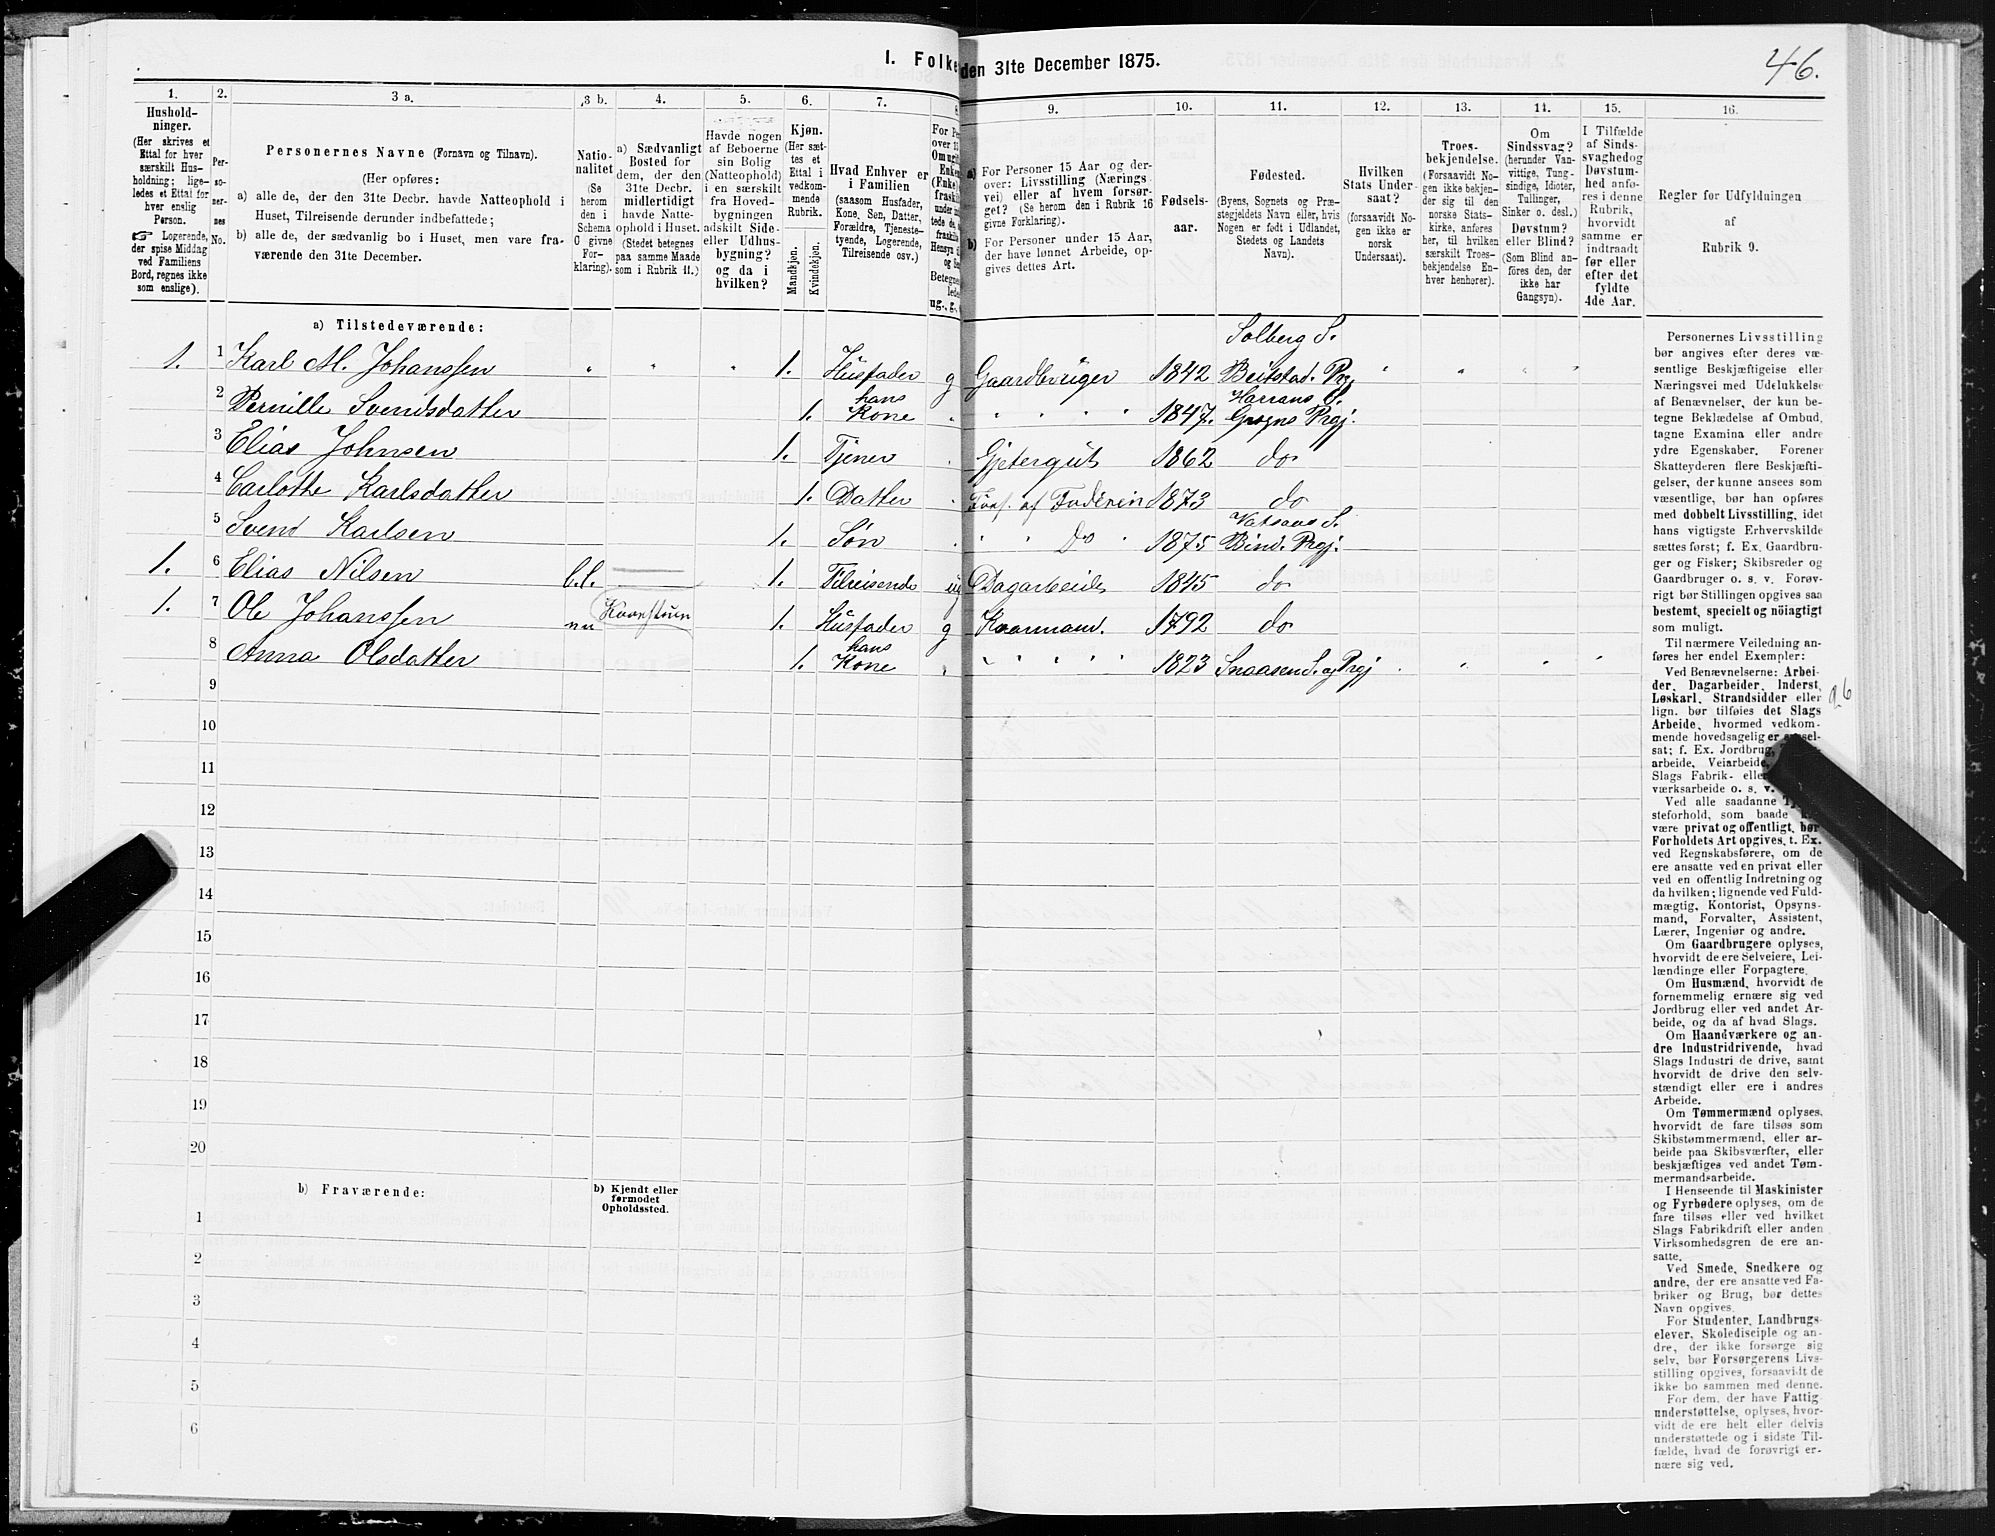 1. Folke den 31te December 1875.
46.
1. 2. 3 a. 3 b. 4. 5. 6. 7. 8 9. 10. 11. 12. 13. 14. 15. 16.
Hushold-
ninger.
(Her skrives et
Ettal for hver
særskilt Hus-
holdning; lige-
ledes et Ettal for
hver enslig
Person.
☞ Logerende,
der spise Middag
ved Familiens
Bord, regnes ikke
som enslige).
Per-
so-
ner-
nes
No.
Personernes Navne (Fornavn og Tilnavn).
(Her opføres:
a) alle de, der den 31te Decbr. havde Natteophold i
Huset, Tilreisende derunder indbefattede;
b) alle de, der sædvanlig bo i Huset, men vare fra-
værende den 31te December.
Natio-
nalitet
(Se
herom
den i
Schema
C givne
For-
klaring).
a) Sædvanligt
Bosted for
dem, der den
31te Decbr.
midlertidigt
havde Natte-
ophold i Huset.
(Stedet betegnes
paa samme Maade
som i Rubrik 11.)
Havde nogen
af Beboerne
sin Bolig
(Natteophold)
i en særskilt
fra Hoved-
bygningen
adskilt Side-
eller Udhus-
bygning?
og da i
hvilken?
Kjøn.
(Her sæt-
tes et
Ettal i
vedkom-
mende
Rubrik.
Mandkjøn.
Kvindekjøn.
Hvad Enhver er
i Familien
(saasom Husfader,
Kone, Søn, Datter,
Forældre, Tjeneste-
tyende, Logerende,
Tilreisende osv.)
For Pe
over 15
Om ugift
Enken
(Enke)
fraskil
under in
tede de,
fraskille
Hensyn t
og Se
Betegnes
lede
ug., g.,
a) For Personer 15 Aar og der-
over: Livsstilling (Nærings-
vei) eller af hvem forsør-
get? (Se herom den i Rubrik 16
givne Forklaring).
b) For Personer under 15 Aar,
der have lønnet Arbeide, op-
gives dettes Art.
Fødsels-
aar.
Fødested.
(Byens, Sognets og Præ-
stegjeldets Navn eller, hvis
Nogen er født i Udlandet,
Stedets og Landets
Navn).
Hvilken
Stats Under-
saat?
(forsaavidt No-
gen ikke er
norsk
Undersaat).
Troes-
bekjendelse.
(Forsaavidt No-
gen ikke bekjen-
der sig til den
norske Stats-
kirke, anføres
her, til hvilken
særskilt Troes-
bekjendelse En-
hver henhører).
Om
Sindssvag?
(herunder Van-
vittige, Tung-
sindige, Idioter,
Tullinger,
Sinker o. desl.)
Døvstum?
eller Blind?
(Som Blind an-
føres den, der
ikke har
Gangsyn).
I Tilfælde
af Sinds-
svaghedog
Døvstum-
hed anfø-
res i denne
Rubrik,
hvorvidt
samme er
indtraadt
før eller
efter det
fyldte
4de Aar.
Regler for Udfyldningen
af
Rubrik 9.
a) Tilstedeværende:
Solberg S.
1. 1 Karl M. Johanssen " " " 1. Husfader g Gaardbruger 1842 Beitstad. Prgj " " " "
hans Harrans S.
2 Pernille Svendsdatter 1. Kone " " " " " 1847. Grogns Prgj.
3 Elias Johnsen 1. Tjener . Gjetergut 1862 do
4 Carlotte Karlsdatter 1. Datter . Fors. af Faderen 1873 do
Vatsaas S.
5 Svend Karlsen 1. Søn . " " Do " 1875 Bind. Prgj.
1. 6 Elias Nilsen b.l. 1. Tilreisende ug Dagarbeide 1845 do
1. 7 Ole Johanssen nn 1. Husfader g Kaarmand. 1792 do
hans
8 Anna Olsdatter 1. Kone . " " " " 1823 Snaasen S. og Prgj . " " "
9
10
11
12
13
14
15
16
17
18
19
20
b) Fraværende:
b) Kjendt eller
formodet
Opholdssted.
1
2
3
4
5
6
Personernes Livsstilling
bør angives efter deres væ-
sentlige Beskjæftigelse eller
Næringsvei med Udelukkelse
af Benævnelser, der kun be-
tegne Beklædelse af Ombud,
tagne Examina eller andre
ydre Egenskaber. Forener
Skatteyderen flere Beskjæfti-
gelser, der kunne ansees som
væsentlige, bør han opføres
med dobbelt Livsstilling, idet
hans vigtigste Erhvervskilde
sættes først; f. Ex. Gaardbru-
ger og Fisker; Skibsreder og
Gaardbruger o. s. v. Forøv-
rigt bør Stillingen opgives saa
bestemt, specielt og nöiagtigt
som muligt.
Til nærmere Veiledning an-
føres her endel Exempler:
Ved Benævnelserne: Arbei-
der, Dagarbeider, Inderst,
Løskarl, Strandsidder eller
lign. bør tilføies det Slags
Arbeide, hvormed vedkom-
mende hovedsagelig er syssel-
sat; f. Ex. Jordbrug,
arbeide, Veiarbeide,
Slags Fabrik- eller
værksarbeide o. s. v.
Ved alle saadanne
steforhold, som baade
være privat og offentligt, bør
Forholdets Art opgives, t. Ex.
ved Regnskabsførere, om de
ere ansatte ved en privat eller
ved en offentlig Indretning og
da hvilken; lignende ved Fuld-
mægtig, Kontorist, Opsyns-
mand, Forvalter, Assistent,
Lærer, Ingeniør og andre.
Om Gaardbrugere oplyses,
hvorvidt de ere Selveiere, Lei-
lændinge eller Forpagtere.
Om Husmænd, hvorvidt de
fornemmelig ernære sig ved
Jordbrug eller ved andet Ar-
beide, og da af hvad Slags.
Om Haandværkere og an-
dre Industridrivende, hvad
Slags Industri de drive, samt
hvorvidt de drive den selv-
stændigt eller ere i andres
Arbeide.
Om Tømmermænd oplyses,
hvorvidt de fare tilsøs som
Skibstømmermænd, eller ar-
beide paa Skibsværfter, eller
beskjæftiges ved andet Tøm-
mermandsarbeide.
I Henseende til Maskinister
og Fyrbødere oplyses, om de
fare tilsøs eller ved hvilket
Slags Fabrikdrift eller anden
Virksomhedsgren de ere an-
satte.
Ved Smede, Snedkere og
andre, der ere ansatte ved Fa-
briker og Brug, bør dettes
Navn opgives.
For Studenter, Landbrugs-
elever, Skoledisciple og an-
dre, der ikke forsørge sig
selv, bør Forsørgerens Livs-
stilling opgives, forsaavidt de
ikke bo sammen med denne.
For dem, der have Fattig-
understøttelse, oplyses, hvor-
vidt de ere helt eller delvis
understøttede og i sidste Til-
fælde, hvad de forøvrigt er-
nære sig ved.